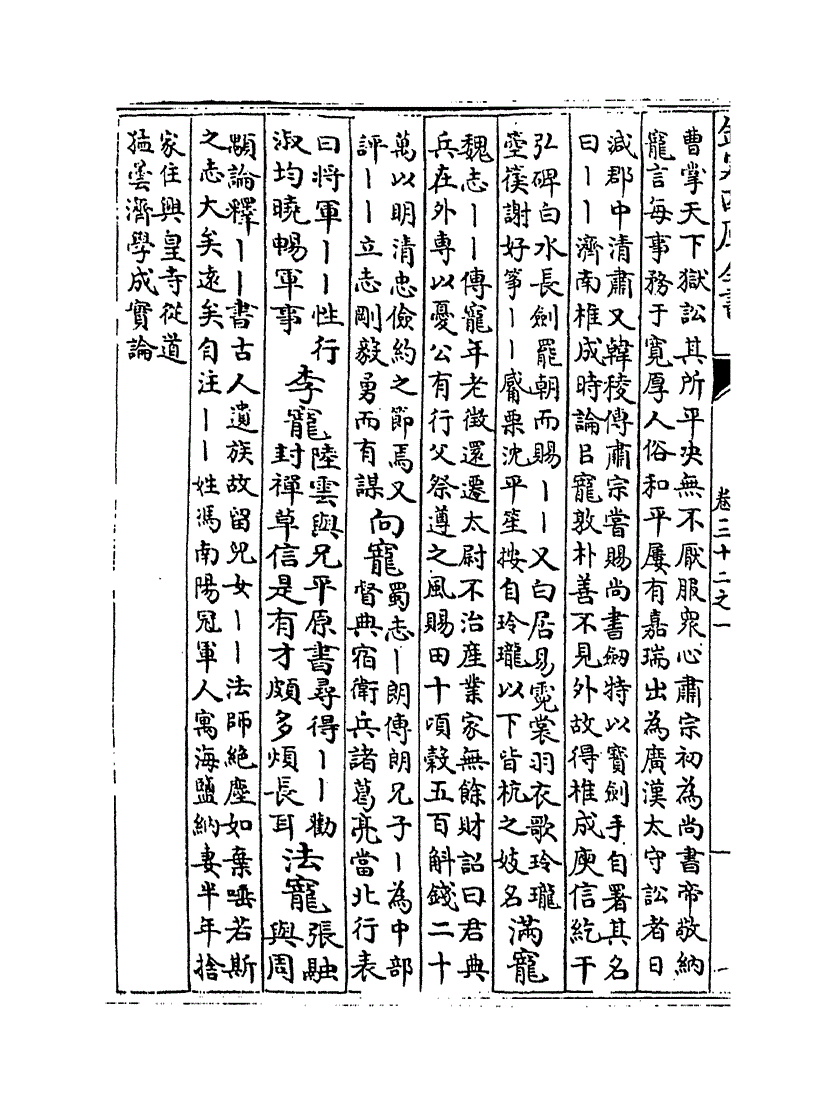 欽定四庫全書
卷三十二之一
曹掌天下獄訟其所平决無不厭服衆心肅宗初為尚書帝敬納
寵言每事務于寛厚人俗和平屢有嘉瑞出為廣漢太守訟者日
減郡中清肅又韓稜傳肅宗嘗賜尚書劒特以寳劍手自署其名
曰丨丨濟南椎成時論㠯寵敦朴善不見外故得椎成庾信紇干
弘碑白水長劍罷朝而賜丨丨又白居易霓裳羽衣歌玲瓏
箜篌謝好箏丨丨觱栗沈平笙按自玲瓏以下皆杭之妓名
滿寵
魏志丨丨傳寵年老徵還遷太尉不治產業家無餘財詔曰君典
兵在外專以憂公有行父祭遵之風賜田十頃穀五百斛錢二十
萬以明清忠儉約之節焉又
評丨丨立志剛毅勇而有謀
向寵
蜀志丨朗傳朗兄子丨為中部
督典宿衛兵諸葛亮當北行表
曰將軍丨丨性行
淑均曉暢軍事
李寵
陸雲與兄平原書尋得丨丨勸
封禪草信是有才頗多煩長耳
法寵
張融
與周
顒論釋丨丨書古人遺族故留兒女丨丨法師絶塵如棄唾若斯
之志大矣遠矣自注丨丨姓馮南陽冠軍人寓海鹽納妻半年捨
家住興皇寺從道
猛曇濟學成實論